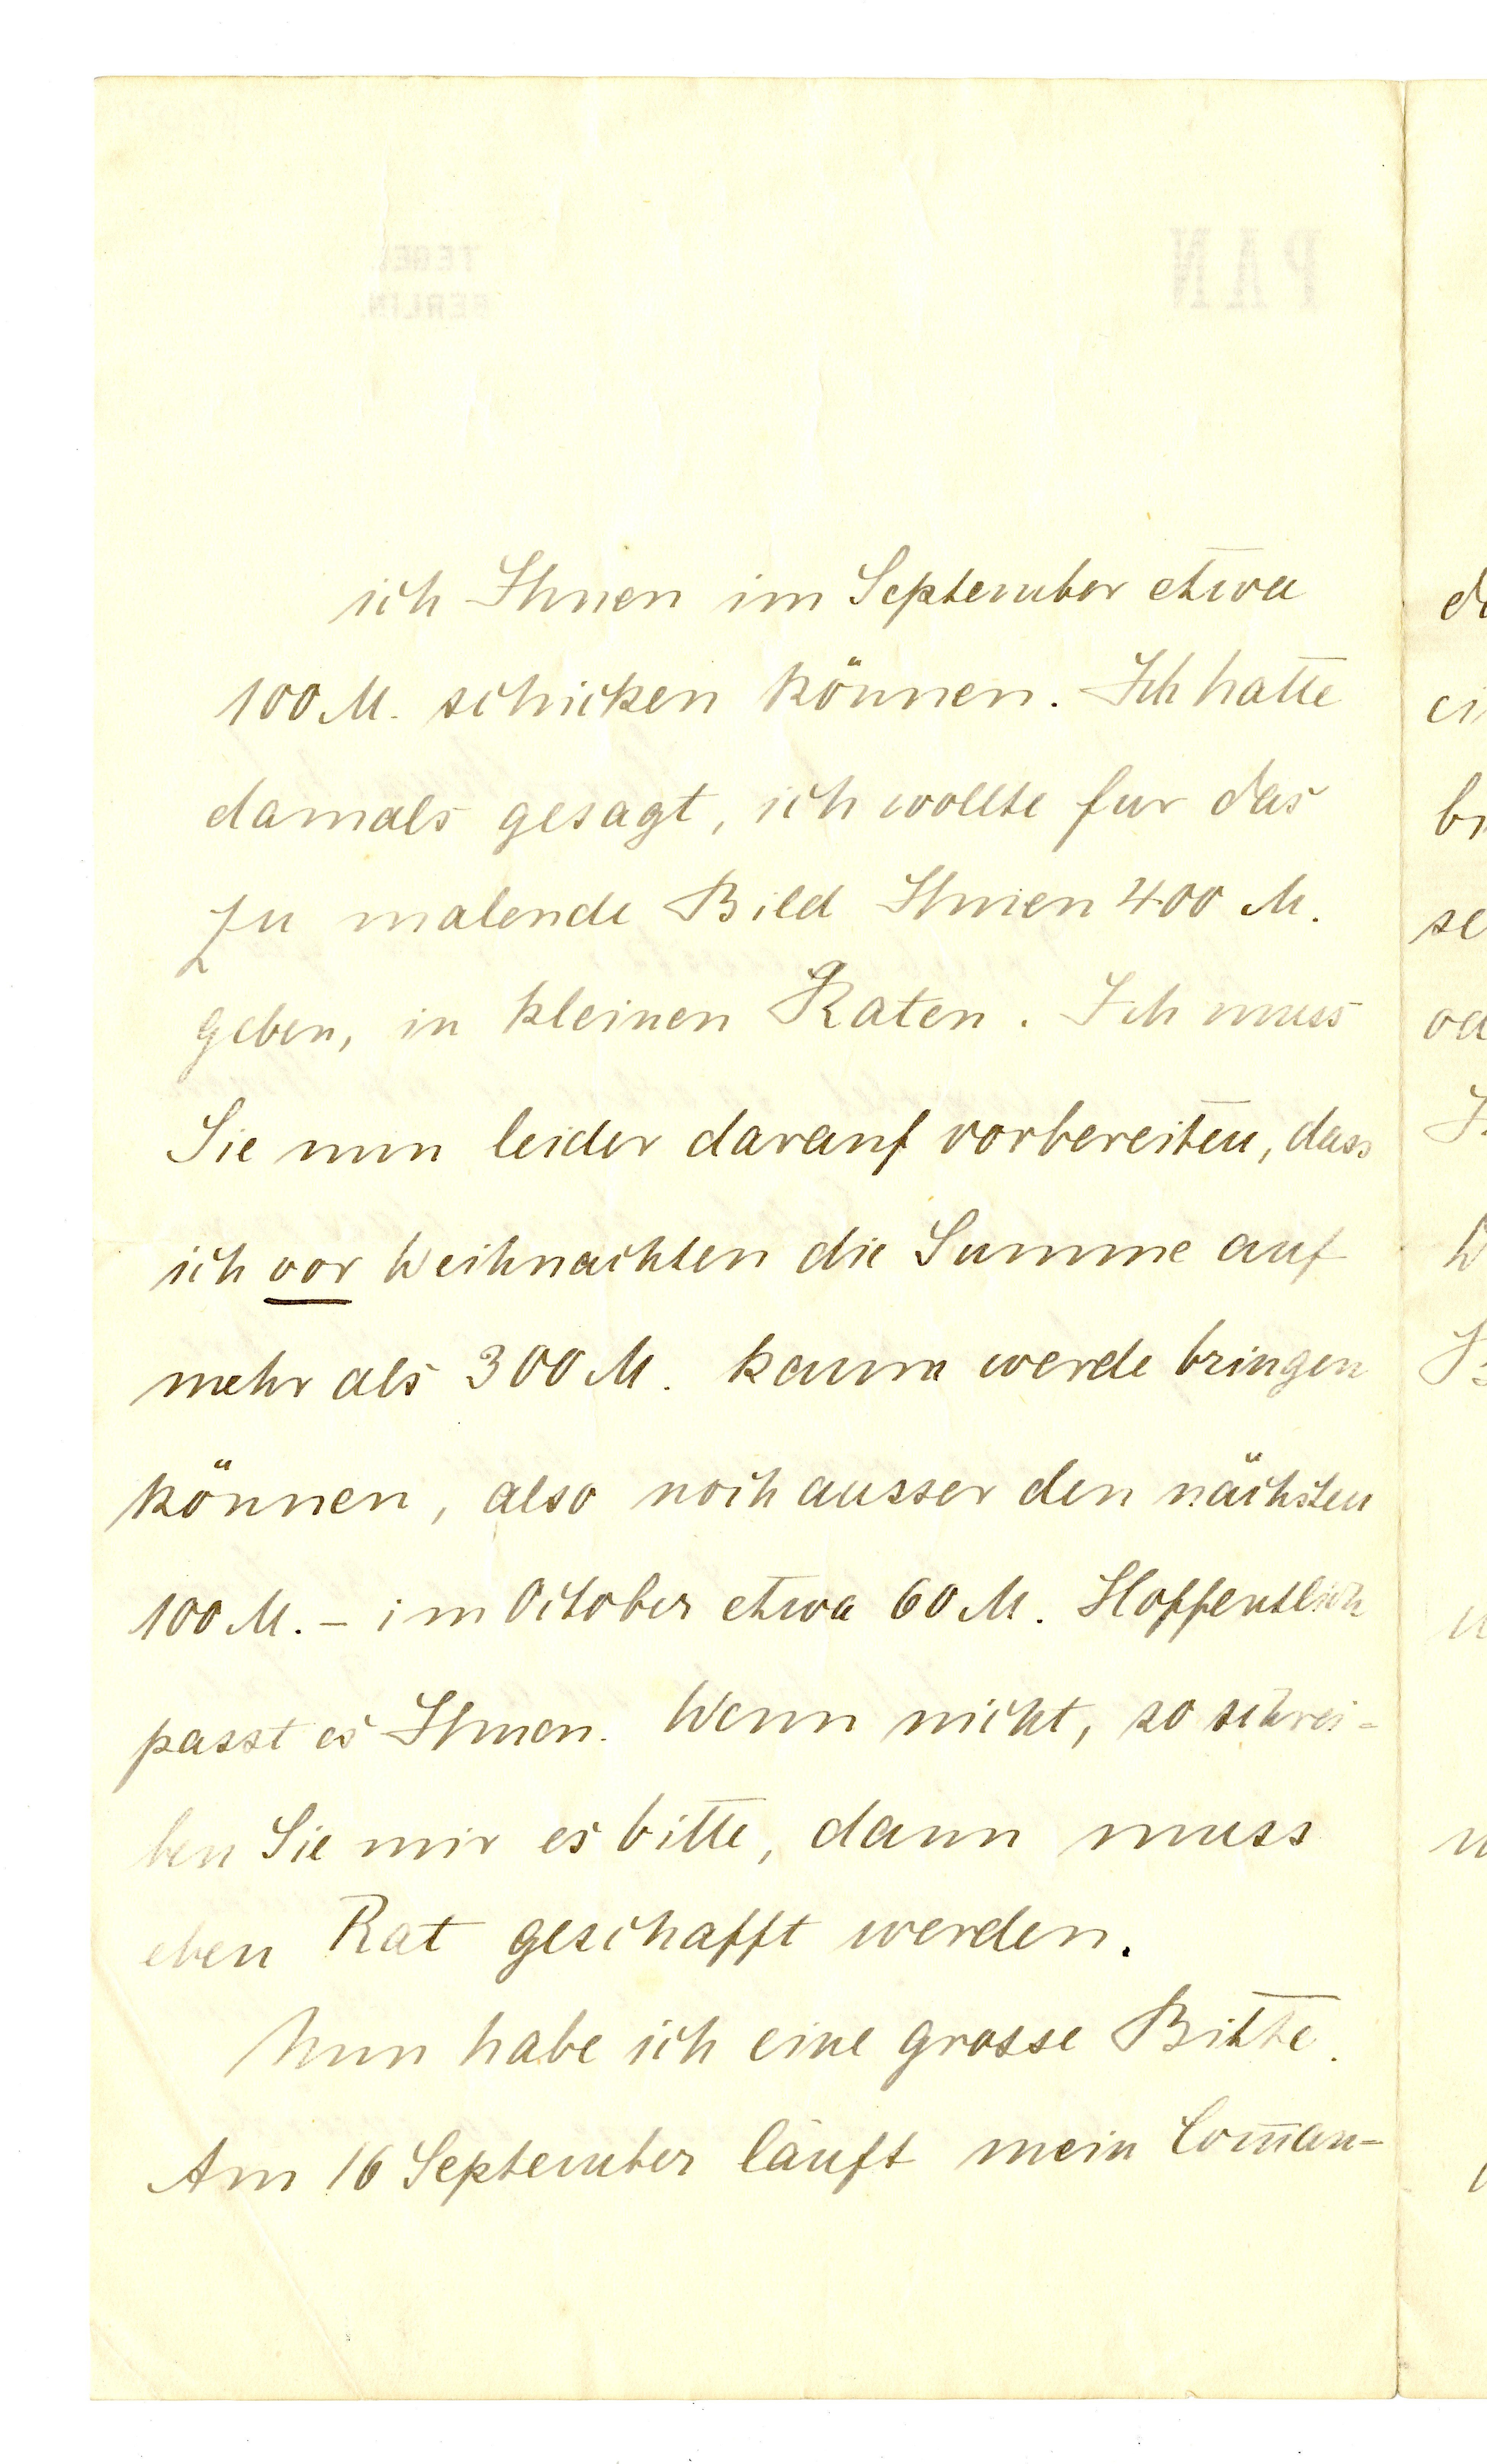 PAN
TEGEL
BERLIN.
ich Ihnen im September etwa
100 M. schicken können. Ich hatte
damals gesagt, ich wollte fur das
zu malende Bild Ihnen 400 M.
geben, in kleinen Raten. Ich muss
Sie nun leider darauf vorbereiten, dass
ich vor Weihnachten die Summe auf
mehr als 300 M. kaum werde bringen
können, also noch ausser den nächsten
100 M. – im October etwa 60 M. Hoffentlich
passt es Ihnen. Wenn nicht, so schrei-
ben Sie mir es bitte, dann muss
eben Rat geschafft werden.
Nun habe ich eine grosse Bitte.
Am 16 September läuft mein Com̅an-